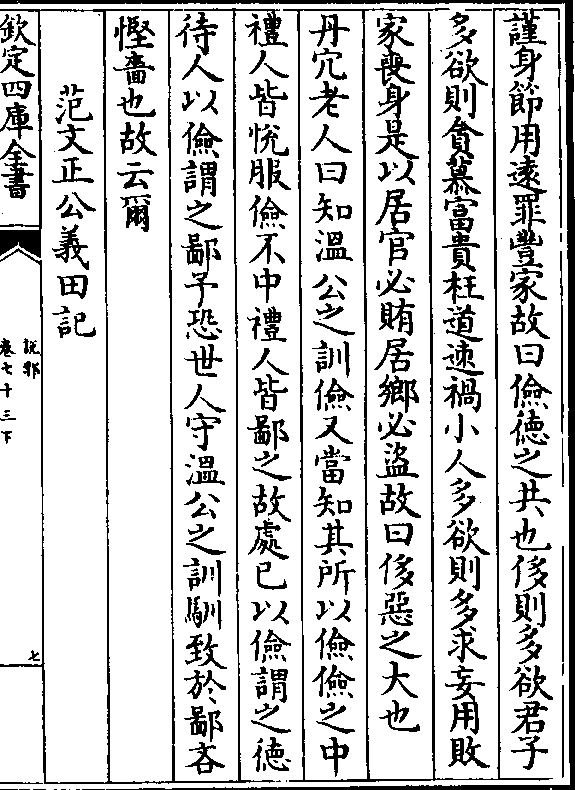 謹身節用遠罪豐家故曰儉德之共也侈則多欲君子
多欲則貪慕富貴枉道速禍小人多欲則多求妄用敗
家喪身是以居官必賄居鄉必盜故曰侈惡之大也
丹穴老人曰知溫公之訓儉又當知其所以儉儉之中
禮人皆悅服儉不中禮人皆鄙之故處已以儉謂之德
待人以儉謂之鄙予恐世人守溫公之訓馴致於鄙吝
慳嗇也故云爾
范文正公義田記
欽定四庫全書
說郛
卷七十三下
七